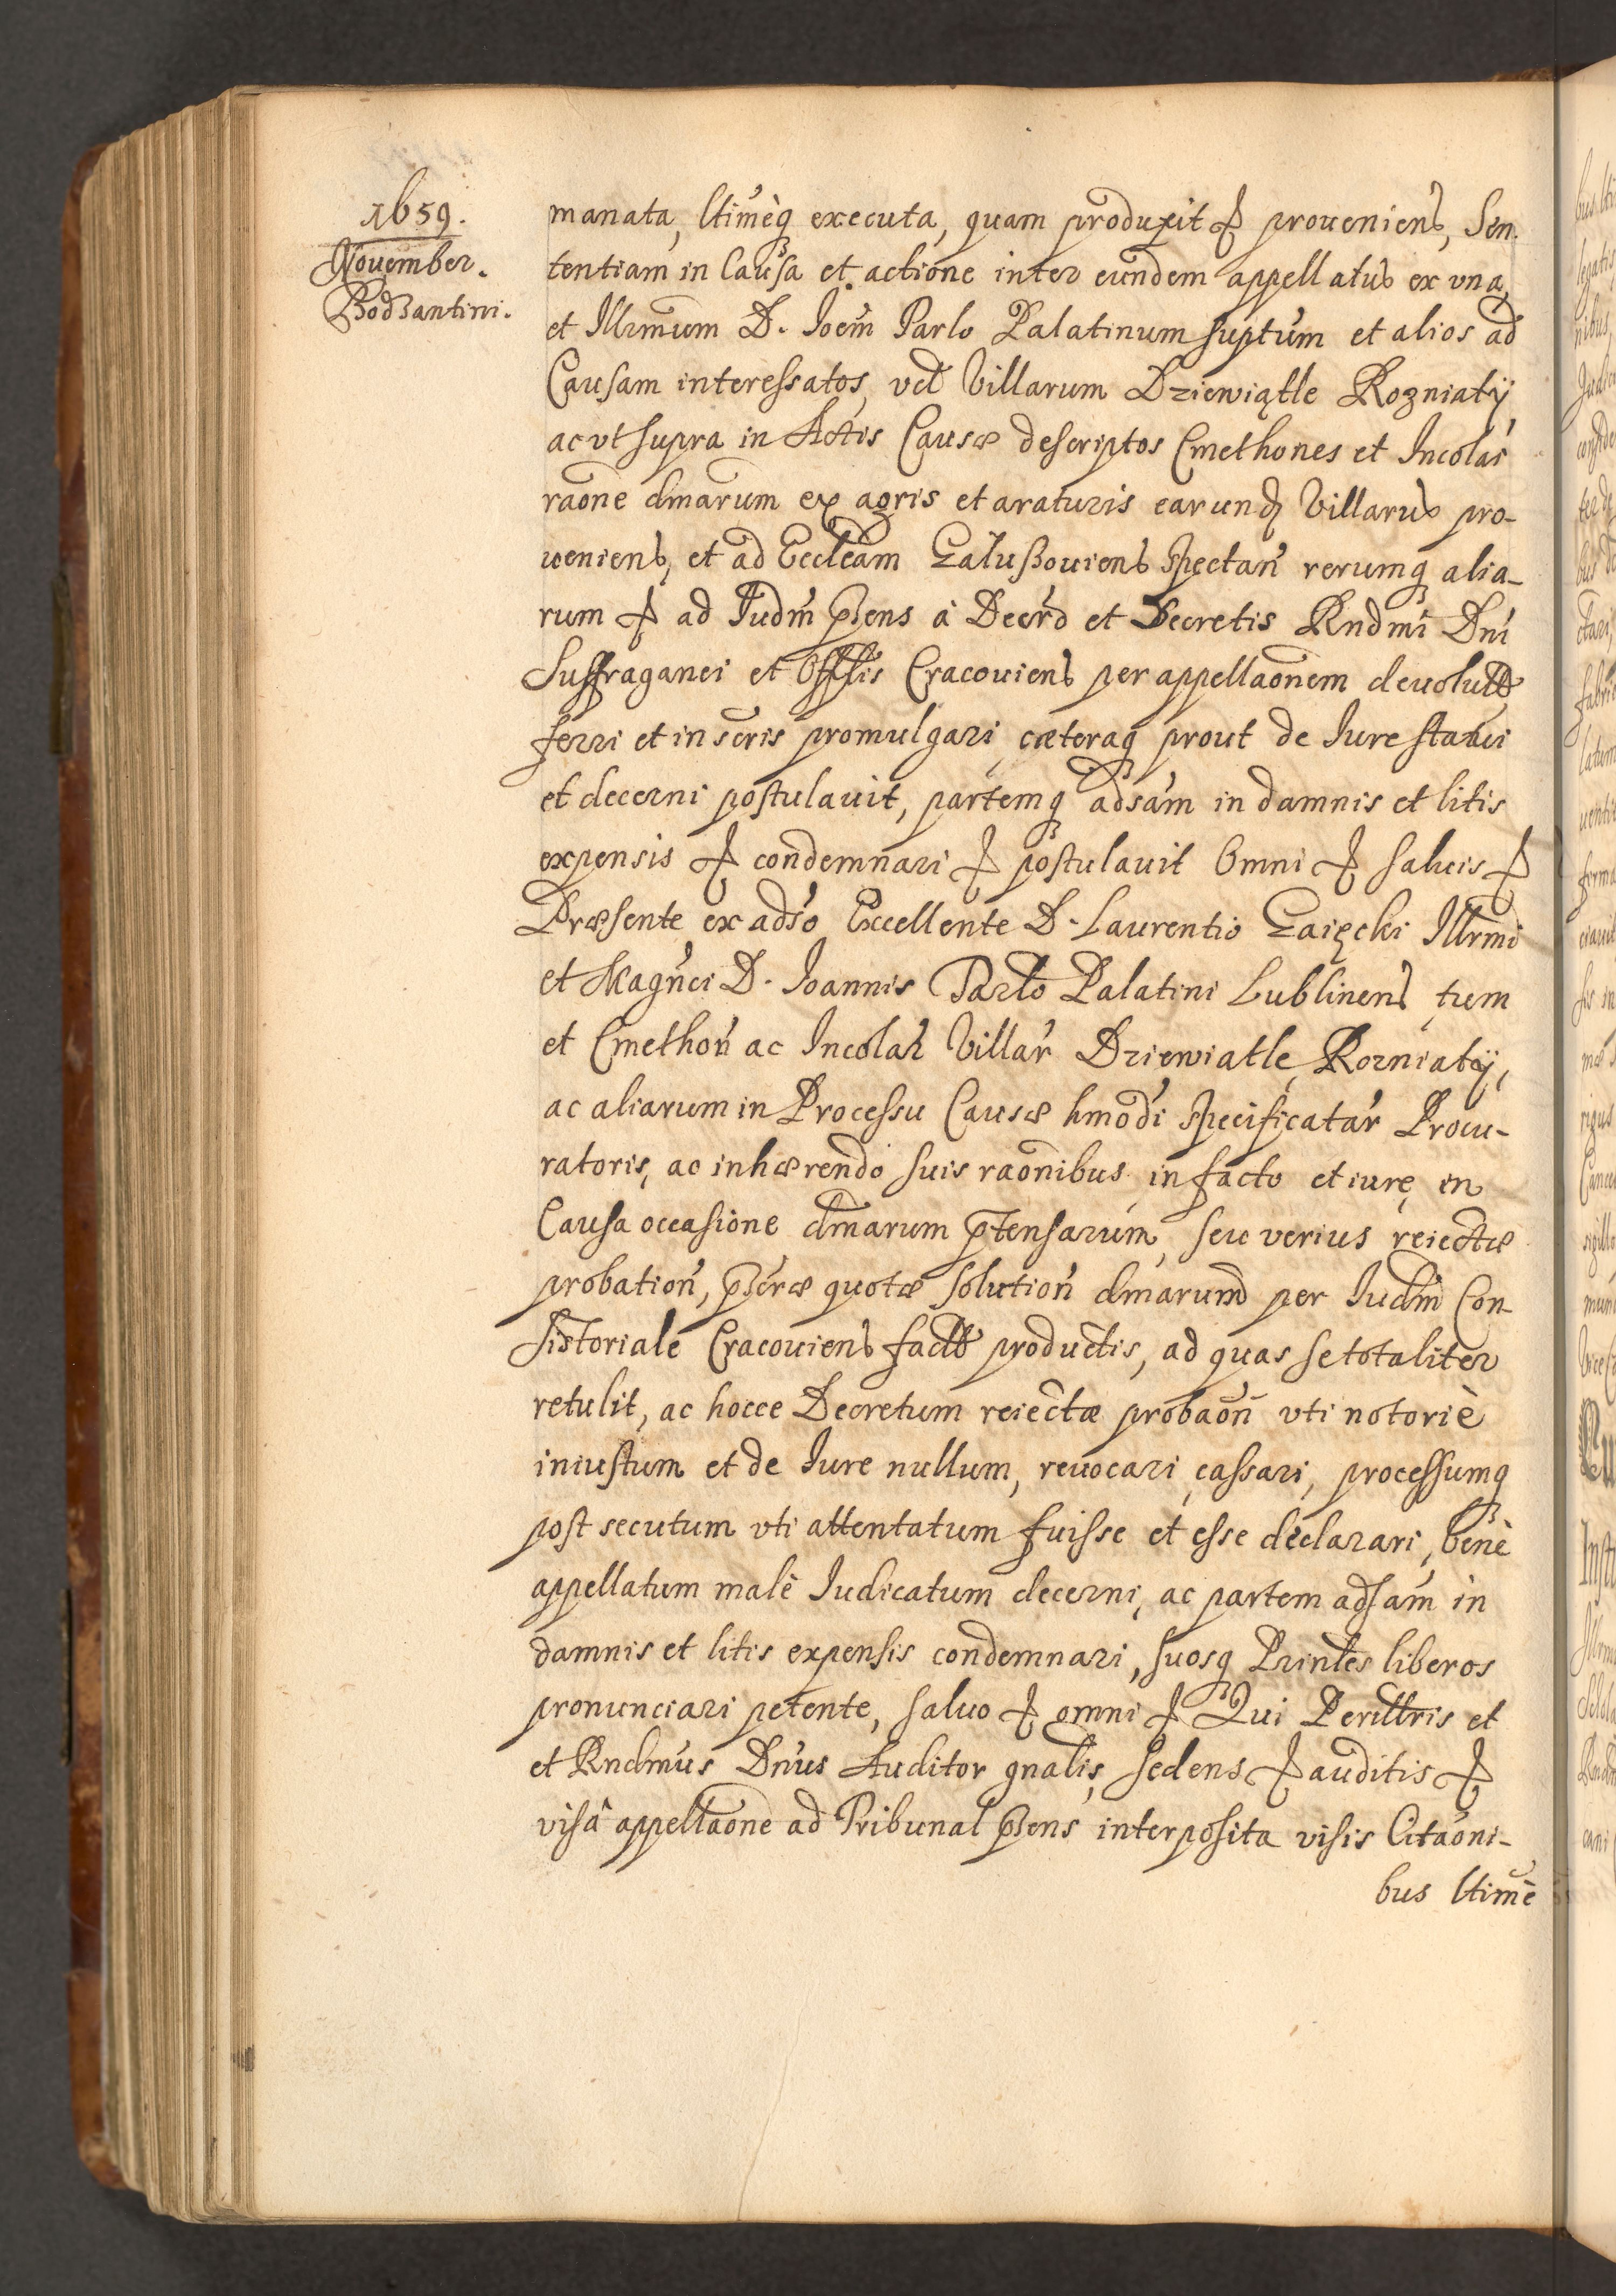 1659.
Nouember.
Bodzantini.
manata, ltimèq executa, quam produxit & proueniens, Sen-
tentiam in Causa et actione inter eundem appellatus ex vna,
et Illrmum D. Joem Parlo Palatinum suptum et alios ad
Causam interessatos, vel Villarum Dziewiątle Rozniaty,
ac vt supra in Actis Causæ descriptos Cmethones et Incolas
raone dmarum ex agris et araturis earund Villarum pro-
ueniens, et ad Eccleam Gałuszouiens spectan rerumq alia-
rum & ad Iudm pñens à Decrd et Decretis Rndmi Dni
Suffraganei et Offlis Cracouiens per appellaonem deuolutæ
ferri et in scris promulgari, cæteraq prout de Iure statui
et decerni postulauit, partemq adsam in damnis et litis
expensis & condemnari & postulauit Omni & saluis &
Præsente ex adso Excellente D. Laurentio Gaięcki Illrmi
et Magnci D. Joannis Parlo Palatini Lublinens, tum
et Cmethon ac Incolar Villar Dziewiatle, Rozniaty,
ac aliarum in Processu Causæ hmodi specificatar Procu-
ratoris, ac inhærendo suis raonibus in facto et iure, in
Causa occasione dmarum ptensarum, seu verius reiectæ
probation, pseræ quotæ solution dmarum per Iudm Con-
sistoriale Cracouiens factæ productis, ad quas se totaliter
retulit, ac hocce Decretum reiectæ probaon vti notoriè
iniustum et de Iure nullum, reuocari, cassari, processumq
post secutum vti attentatum fuisse et esse declarari, benè
appellatum malè Iudicatum decerni, ac partem adsam in
damnis et litis expensis condemnari, suosq Printes liberos
pronunciari petente, saluo & omni & Qui Perillris et
et Rndmus Dnus Auditor gnalis, sedens & auditis &
visâ appellaone ad Tribunal pñens interposita visis Citaoni-
bus ltimè